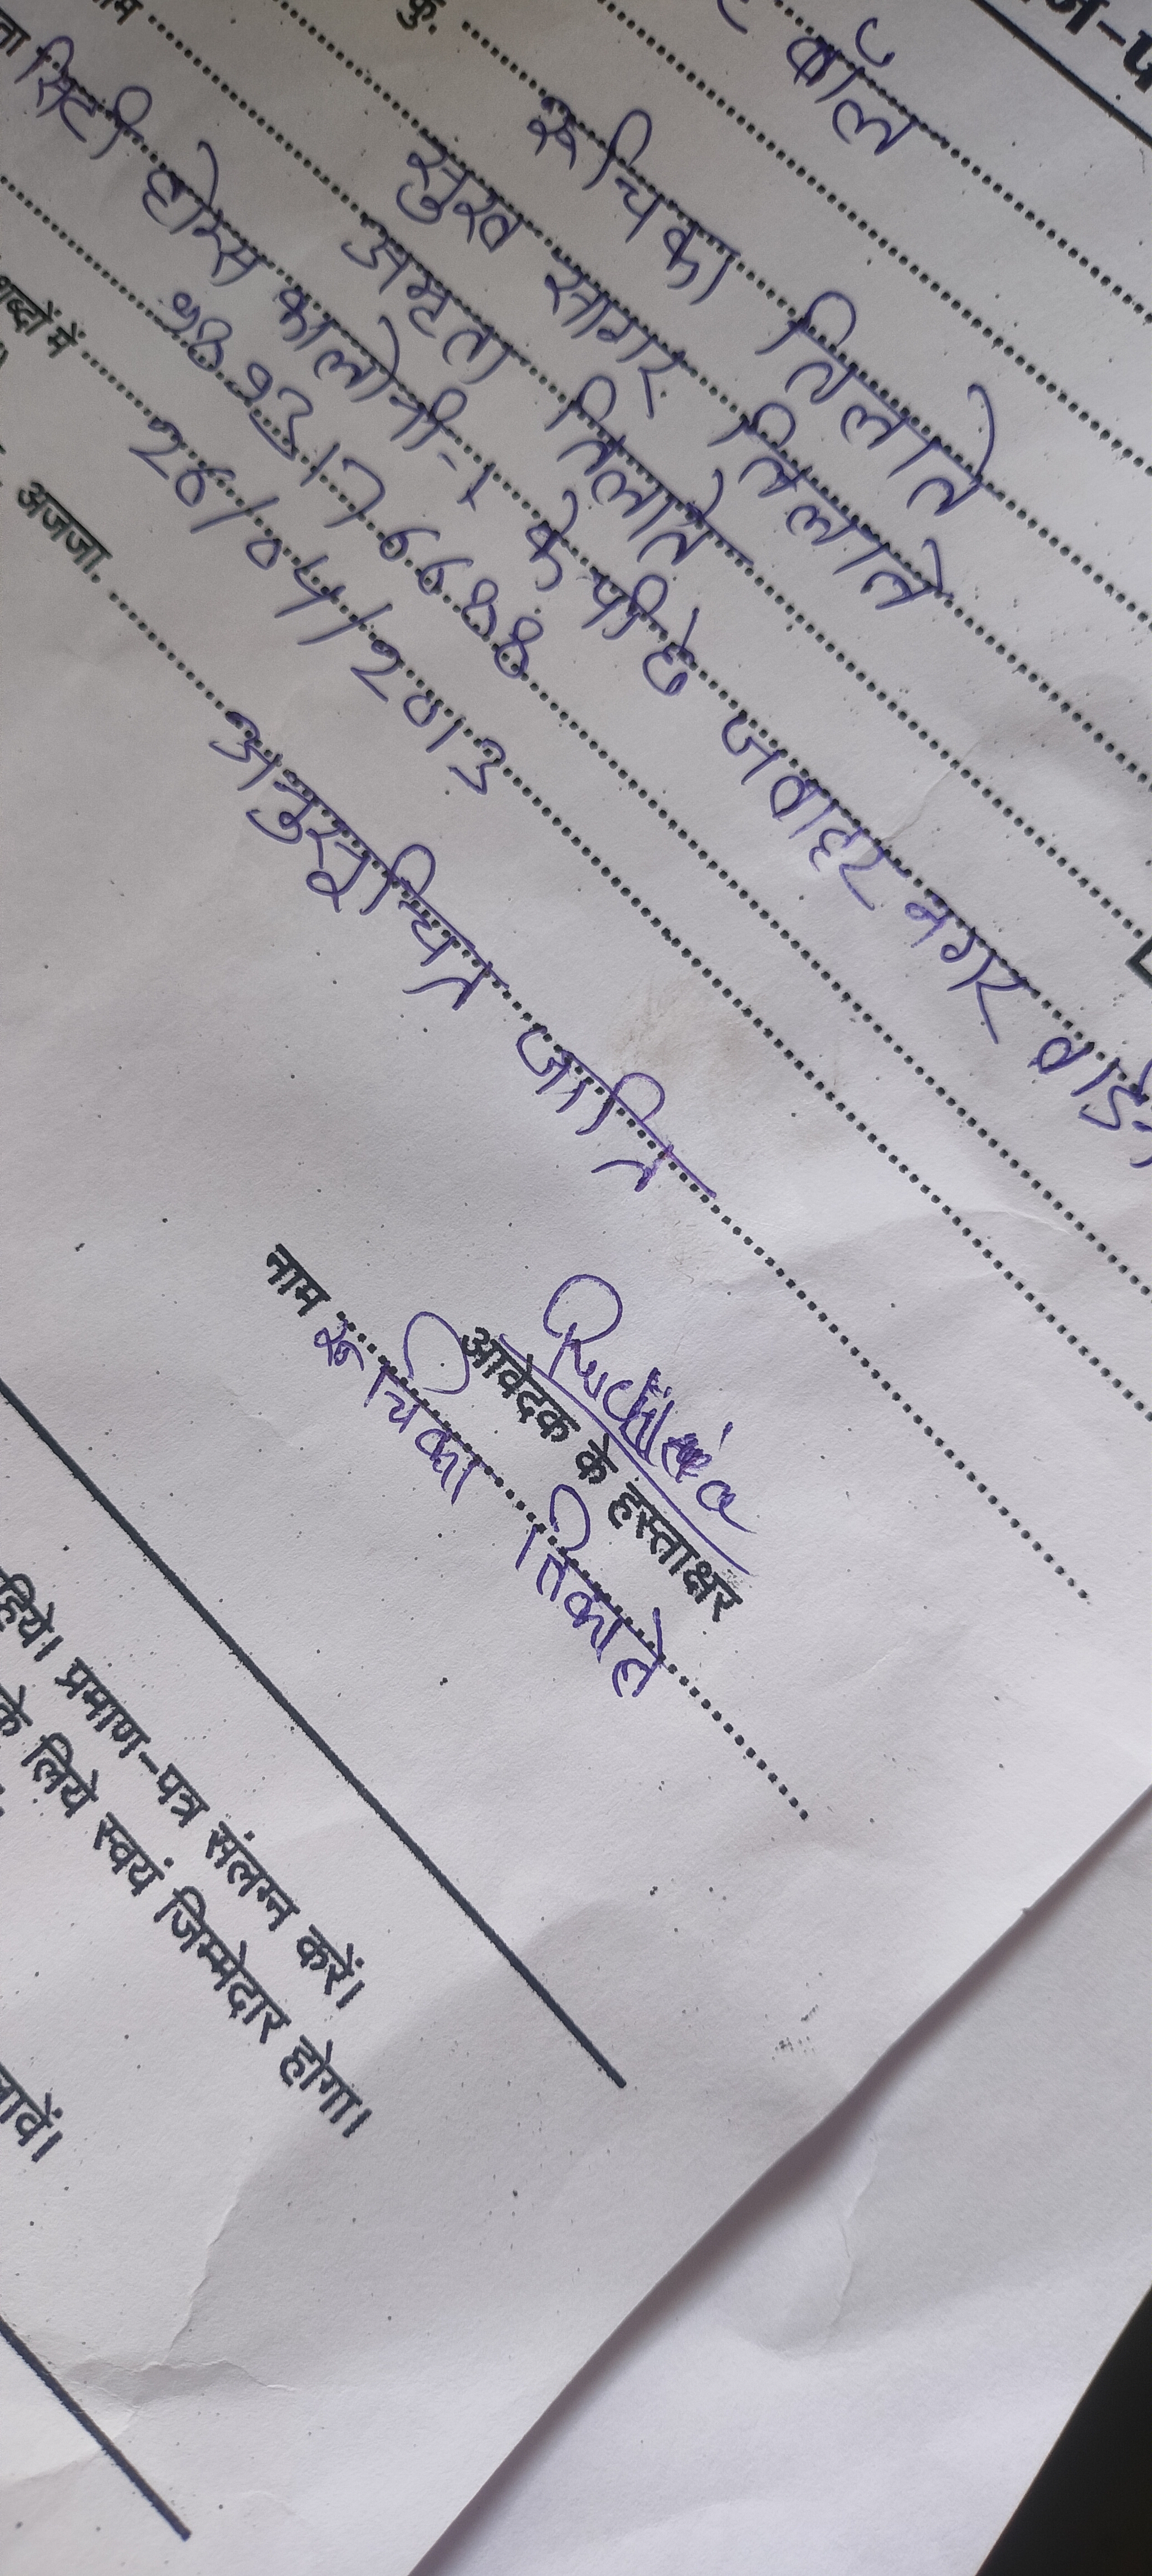 कॉल
कु. रूचिका तिलाते
सुख सागर तिलाते
अमृता तिलाते
सिटी होम्स कालोनी-1 के पीछे जवाहर नगर वार्ड
9893176688
शब्दों में 26/04/2013
अजजा. अनुसूचित जाति
Ruchika
आवेदक के हस्ताक्षर
नाम रूचिका तिलाते
प्रमाण-पत्र संलग्न करें।
के लिये स्वयं जिम्मेदार होगा।